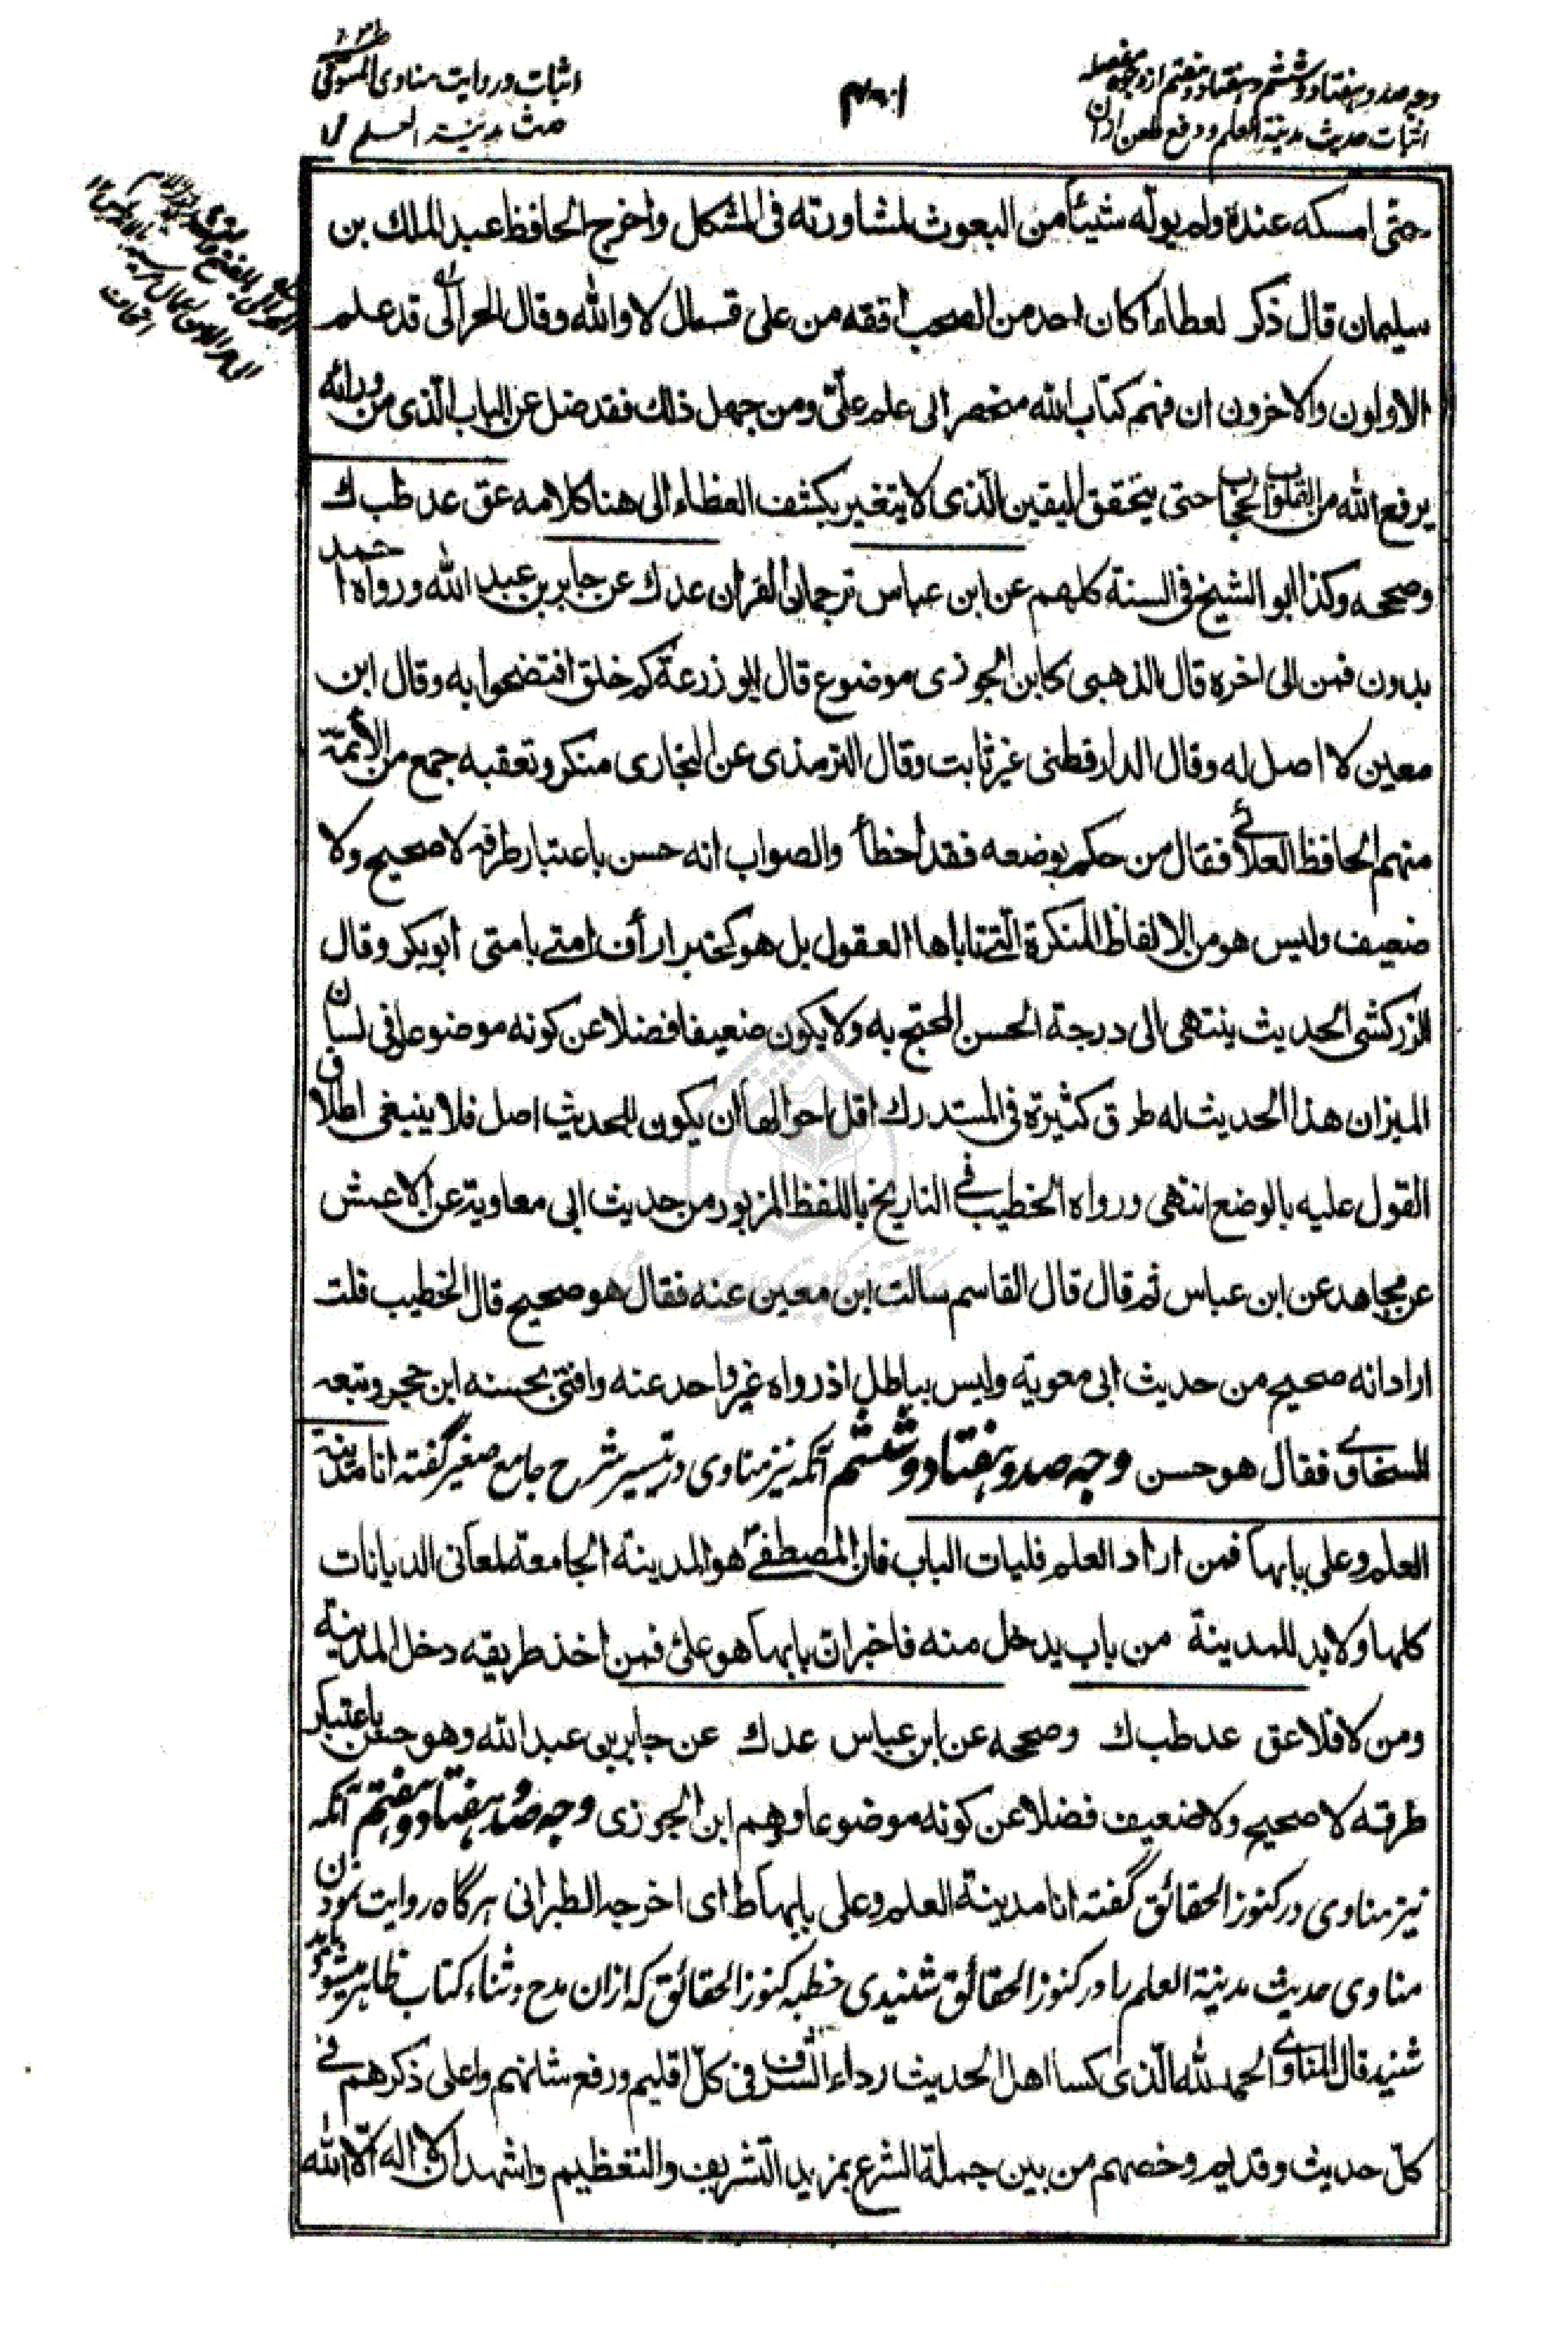 وجه صد و هفتاد و ششم و هفتاد و هفتم از وجوه مفصله
اثبات حدیث مدینة العلم و دفع طعن از ان
اثبات و روایت مناوی
حدیث مدینة العلم را
حتى امسكه عنده ولم يولّه شيئاً من البعوث لمشاورته فى المشكل واخرج الحافظ عبد الملك بن
سليمان قال ذكر لعطاء اكان احد من الصحب افقه من على قسال لا والله وقال الحرالّى قد علم
الاولون والاخرون ان فهم كتاب الله منحصر الى علم علىّ ومن جهل ذلك فقد ضل عن الباب الّذى من ورائه
يرفع الله من القلوب الحجاب حتى يتحقق اليقين الّذى لا يتغير بكشف الغطاء الى هنا كلامه عق عد طب ك
وصححه وكذا ابو الشيخ فى السنة كلهم عن ابن عباس ترجمان القران عد ك عن جابر بن عبد الله ورواه احمد
بدون فمن الى اخره قال الذهبى كابن الجوزى موضوع قال ابو زرعة كم خلق افتضحوا به وقال ابن
معين لا اصل له وقال الدارقطنى غير ثابت وقال الترمذى عن البخارى منكر وتعقبه جمع من الأئمّة
منهم الحافظ العلائى فقال من حكم بوضعه فقد اخطأ والصواب انه حسن باعتبار طرقه لا صحيح ولا
ضعيف وليس هو من الالفاظ المنكرة الّتى تاباها العقول بل هو كخبر ارأف امتى بامتى ابو بكر وقال
الزركشى الحديث ينتهى الى درجة الحسن المحتج به ولا يكون ضعيفا فضلا عن كونه موضوعا وفى لسان
الميزان هذا الحديث له طرق كثيرة فى المستدرك اقل احوالها ان يكون للحديث اصل فلا ينبغى اطلاق
القول عليه بالوضع انتهى ورواه الخطيب فى التاريخ باللفظ المزبور من حديث ابى معاوية عن الاعمش
عن مجاهد عن ابن عباس ثم قال قال القاسم سالت ابن معين عنه فقال هو صحيح قال الخطيب قلت
اراد انه صحيح من حديث ابى معوية وليس بباطل اذ رواه غير واحد عنه وافتى بحسنه ابن حجر وتبعه
السخاوى فقال هو حسن وجه صد و هفتاد و ششم آنکه نیز مناوی در تیسیر شرح جامع صغیر گفته انا مدينة
العلم وعلى بابها فمن اراد العلم فليات الباب فان المصطفى هو المدينة الجامعة لمعانى الديانات
كلها ولا بد للمدينة من باب يدخل منه فاخبر ان بابها هو علىّ فمن اخذ طريقه دخل المدينة
ومن لا فلا عق عد طب ك وصححه عن ابن عباس عد ك عن جابر بن عبد الله وهو حسن باعتبار
طرقه لا صحيح ولا ضعيف فضلا عن كونه موضوعا ووهم ابن الجوزى وجه صد و هفتاد و هفتم آنکه
نیز مناوی در کنوز الحقائق گفته انا مدينة العلم وعلى بابها ط اى اخرجه الطبرانى هرگاه روایت نمودن
مناوی حدیث مدینة العلم را در کنوز الحقائق شنیدی خطبه کنوز الحقائق که ازان مدح و ثناء کتاب ظاهر میشود باید
شنید قال المناوى الحمد لله الّذى كسا اهل الحديث رداء الشرف فى كلّ اقليم ورفع شانهم واعلى ذكرهم فى
كلّ حديث وقديم وخصهم من بين حملة الشرع بمزيد التّشريف والتعظيم واشهد ان لا اله الّا الله